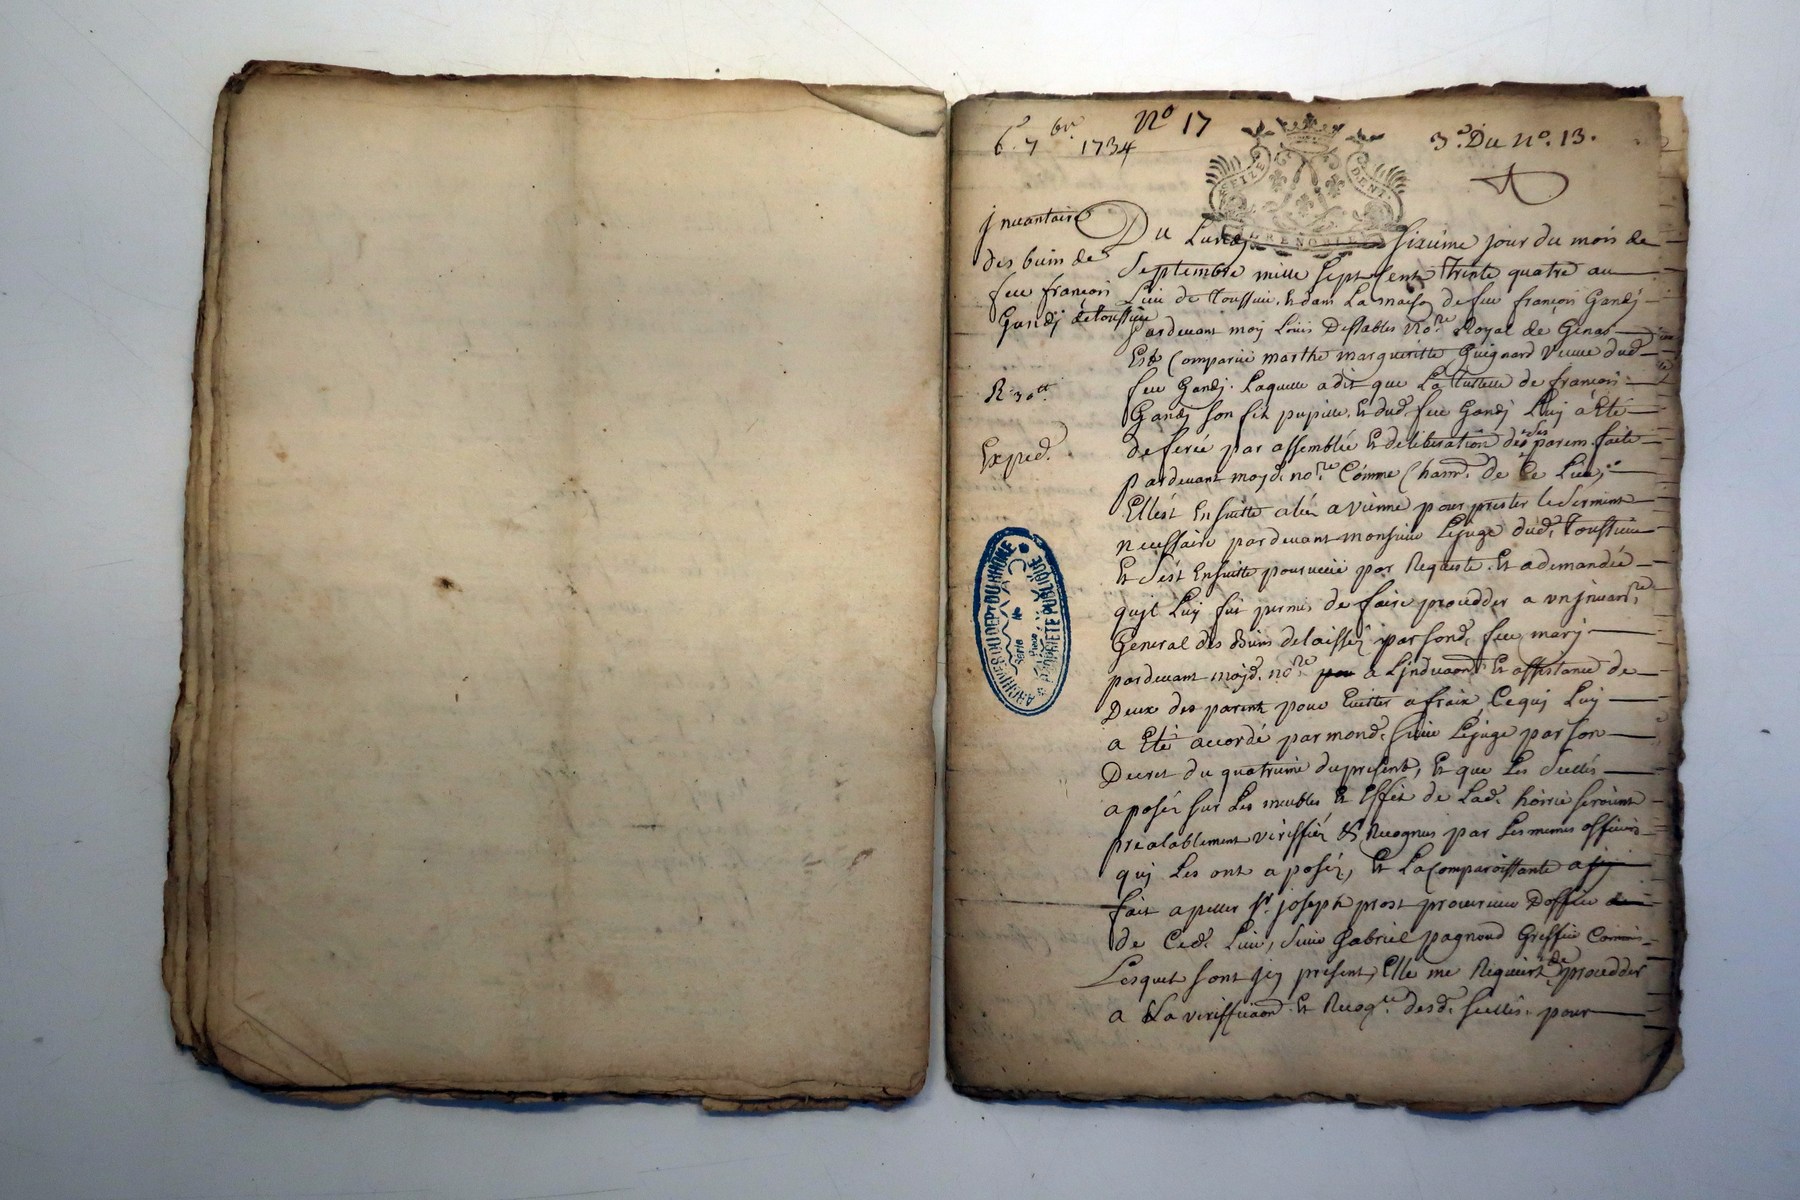 6e 7bre 1734
No 17
3e Du No. 13.
SEIZE DENI
GRENOBLE
jnuantaire
des biens de
feu françois
Gandj de toussieu
R 30tt
Exped.
ARCHIVES DU DEPt DU RHÔNE
Série No
PROPRIÉTÉ PUBLIQUE
Du Lundj sixiême jour du mois de
Septembre mille sept Cents Trente quatre au
Lieu de Toussieu, Et dans La maison de feu françois Gandj
pardeuant moy Louis Desstables Nore Royal de Genas
Est Comparüe marthe margueritte Guignard veuue dud.
feu Gandj. Laquelle a dit que La Tutelle de françois
Gandj son fils pupille, Et dud. feu Gandj Luy à Eté
deferée par assemblée Et deliberation de ses parens faite
Pardeuant moyd. nore Comme Chatn. de Ce Lieu,
Ellest Ensuitte alée a vienne pour prester le serment
necessaire pardeuant monsieur Lejuge dud. Toussieu
Et s'est Ensuitte pourueüe par Requeste. Et a demandée
qujl Luy fut permis de faire procedder a vn jnuanre
General des Biens delaissés par sond. feu mary
pardeuant moyd. nore a L'jnduaon Et assistance de
Deux des parents pour Euitter a fraix, Ce quj Luy
a Eté accordé par mond. sieur Lejuge par son
Decret du quatrieme du present, Et que Les scellés
aposés sur Les meubles Et Effets de Lad. hoirie seroient
prealablement veriffiés & Recognus par Les memes officiers
quj Les ont aposés, Et La Comparoissante a
fait apeller sr. joseph prost procureur d'office
de Ced. Lieu, sieur Gabriel pagnoud Greffier
Lesquels sont jcy présent, Elle me Requiert de procedder
a La veriffication Et Recogce. desd. scellés. pour